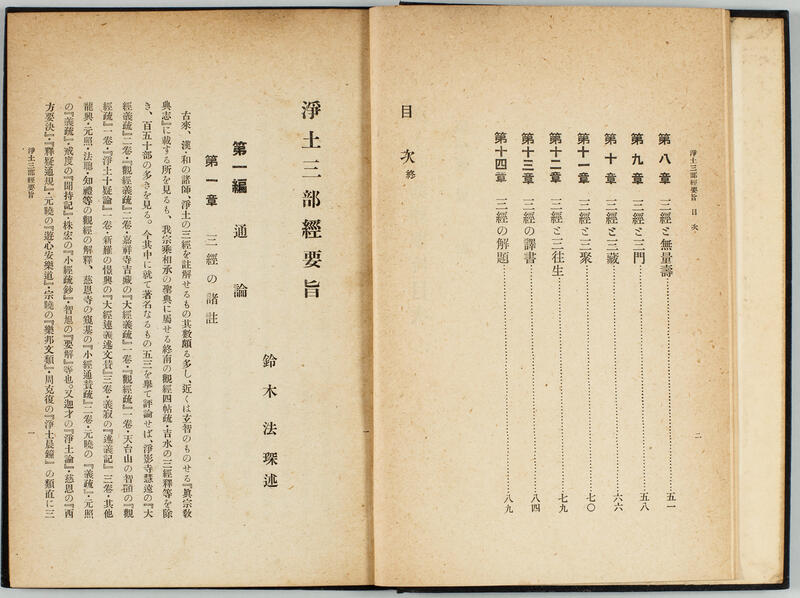 淨土三部經要旨 目次
二
第八章 三經と無量壽 五一
第九章 三經と三門 五八
第十章 三經と三藏 六六
第十一章 三經と三聚 七〇
第十二章 三經と三往生 七九
第十三章 三經の譯書 八四
第十四章 三經の解題 八九
目次 終
淨土三部經要旨
鈴木法琛述
第一編 通論
第一章 三經の諸註
古來、漢・和の諸師、淨土の三經を註解せるもの其數頗る多し、近くは玄智のものせる『眞宗敎
典志』に載する所を見るも、我宗乘相承の聖典に屬せる終南の觀經四帖疏・吉水の三經釋等を除
き、百五十部の多きを見る。今其中に就て著名なるもの五三を擧て評論せば、淨影寺慧遠の『大
經義疏』二卷・『觀經義疏』二卷・嘉祥寺吉藏の『大經義疏』一卷・『觀經疏』一卷・天台山の智顗の『觀
經疏』一卷・『淨土十疑論』一卷・新羅の憬興の『大經連義述文贊』三卷・義寂の『述義記』三卷・其他
龍興・元照・法聰・知禮等の觀經の解釋、慈恩寺の窺基の『小經通贊疏』二卷・元曉の『義疏』・元照
の『義疏』・戒度の『聞持記』・袾宏の『小經疏鈔』・智旭の『要解』等也。又迦才の『淨土論』・慈恩の『西
方要決』・『釋疑通規』・元曉の『遊心安樂道』・宗曉の『樂邦文類』・周克復の『淨土晨鐘』の類直に三
淨土三部經要旨
一